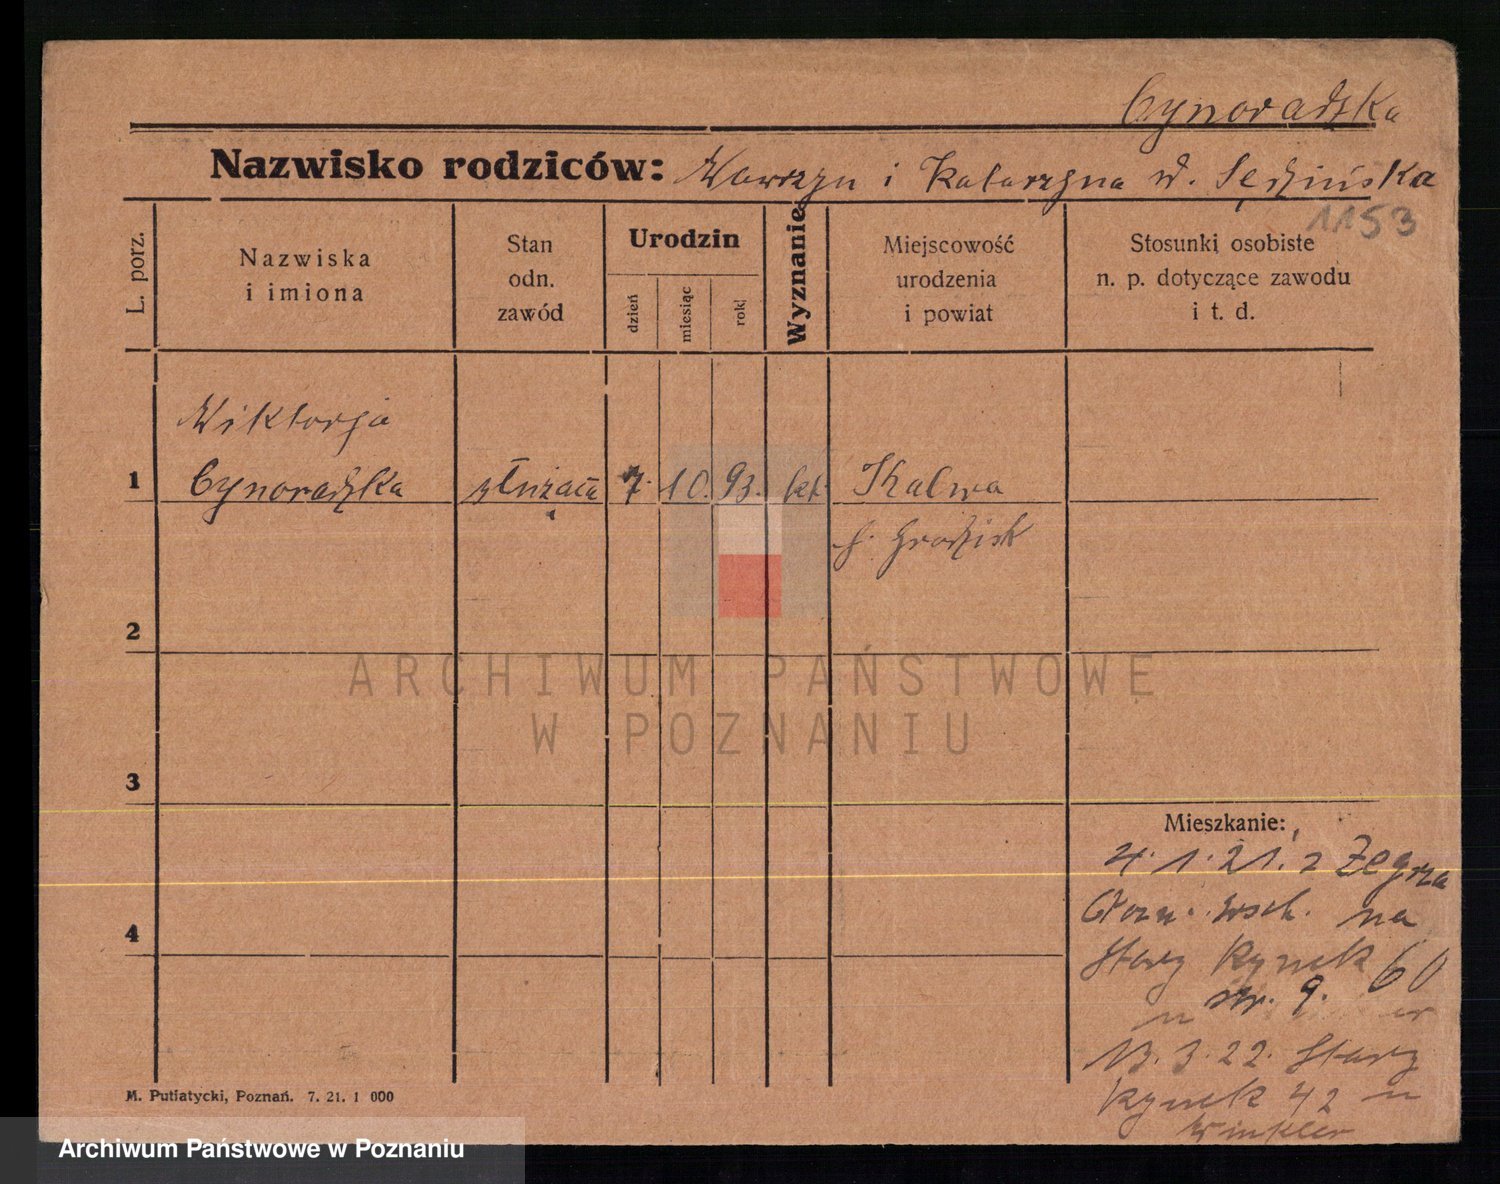 Cynoradzka
Nazwisko rodziców: Wawrzyn i Katarzyna d. Sędzińska
1153
L. porz.
Nazwiska
i imiona
Stan
odn.
zawód
Urodzin
dzień
miesiąc
rok
Wyznanie
Miejscowość
urodzenia
i powiat
Stosunki osobiste
n. p. dotyczące zawodu
i t. d.
Wiktorja
1 Cynoradzka służąca 7. 10. 93. kat. Kalwa
p. Grodzisk
2
ARCHIWUM PAŃSTWOWE
W POZNANIU
3
Mieszkanie:
4. 1. 21. z Zegrza
Pozn. wsch. na
4
Stary Rynek 60
13. 3. 22. Stary
Rynek 42 u
Winkler
M. Putiatycki, Poznań. 7. 21. 1 000
Archiwum Państwowe w Poznaniu